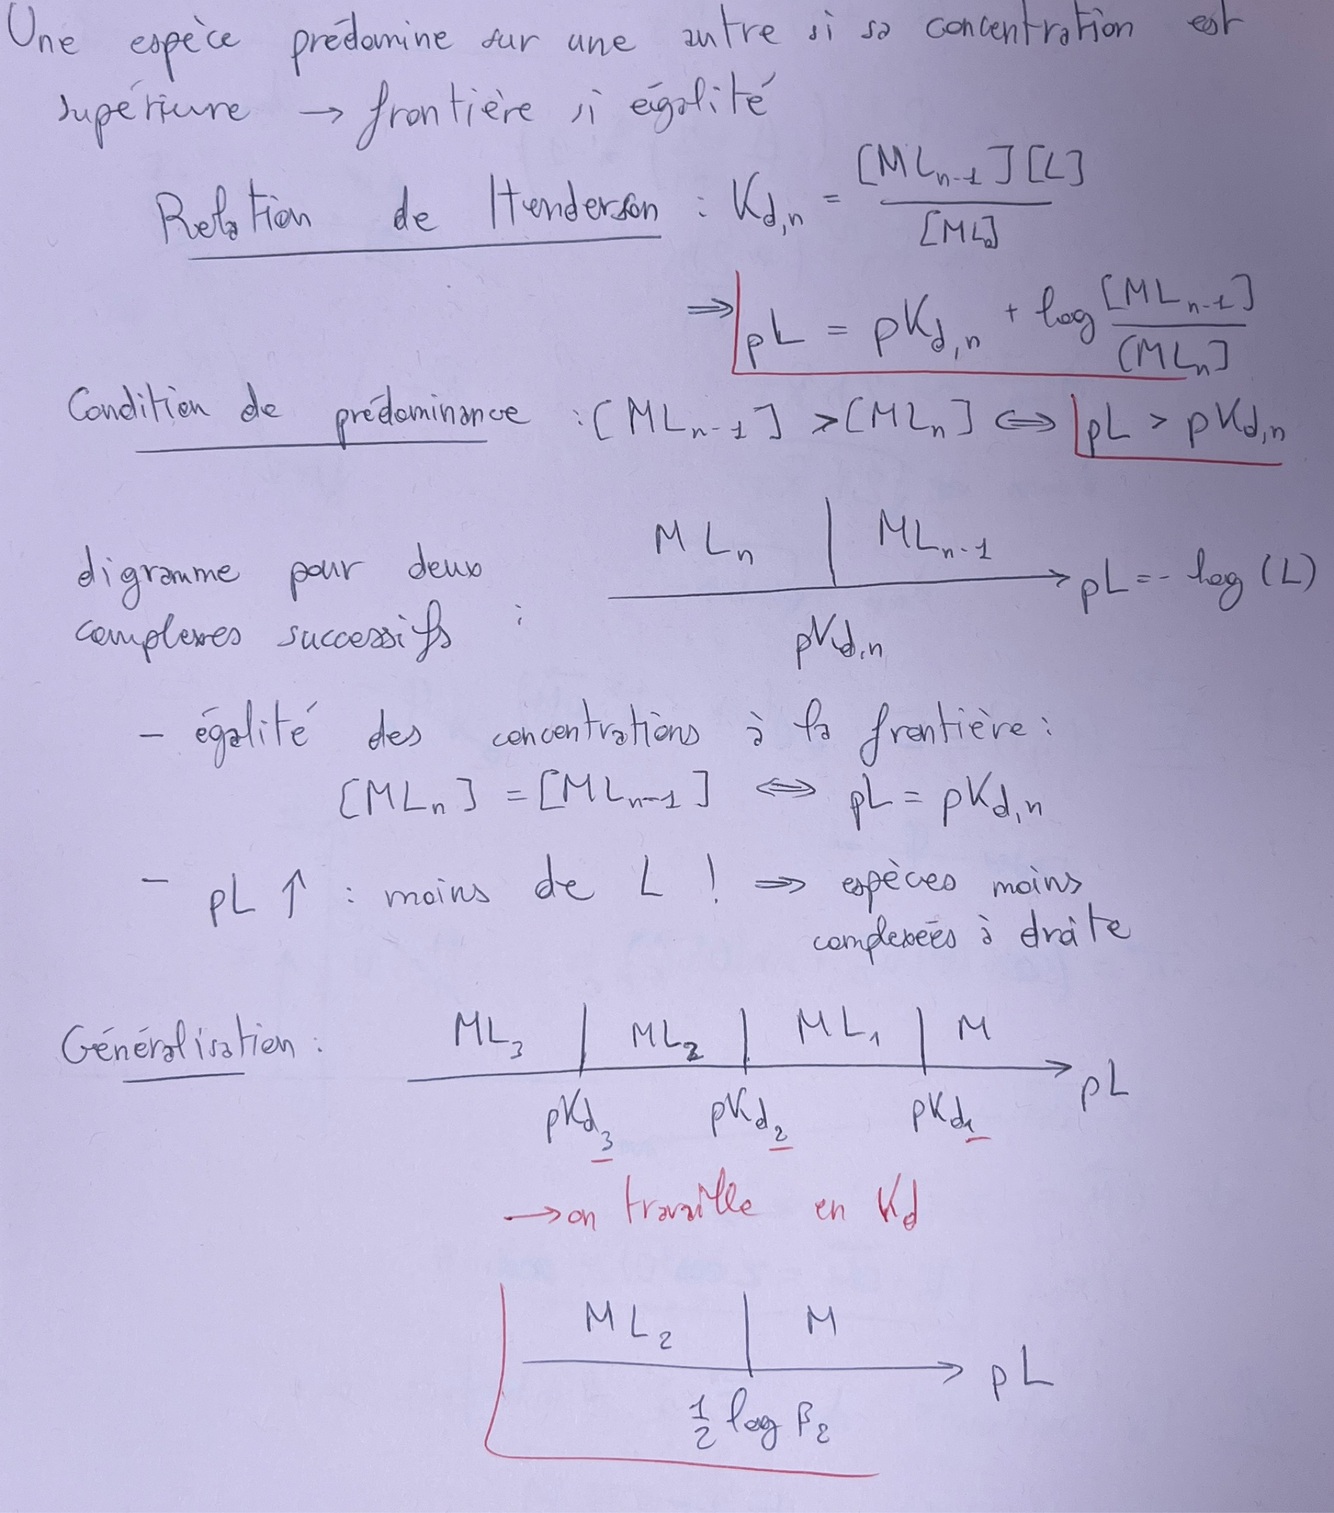 Une espèce prédomine sur une autre si sa concentration est
supérieure → frontière si égalité
Relation de Henderson : K_{d,n} = [ML_{n-1}][L] / [ML_n]
⇒ pL = pK_{d,n} + log [ML_{n-1}] / [ML_n]
Condition de prédominance : [ML_{n-1}] > [ML_n] ⇔ pL > pK_{d,n}
digramme pour deux
complexes successifs :
ML_n | ML_{n-1}
pL = - log (L)
pK_{d,n}
- égalité des concentrations à la frontière :
[ML_n] = [ML_{n-1}] ⇔ pL = pK_{d,n}
- pL ↑ : moins de L ! ⇒ espèces moins
complexées à droite
Généralisation :
ML_3 | ML_2 | ML_1 | M
pL
pK_{d_3} pK_{d_2} pK_{d_1}
→ on travaille en K_d
ML_2 | M
pL
1/2 log β_2